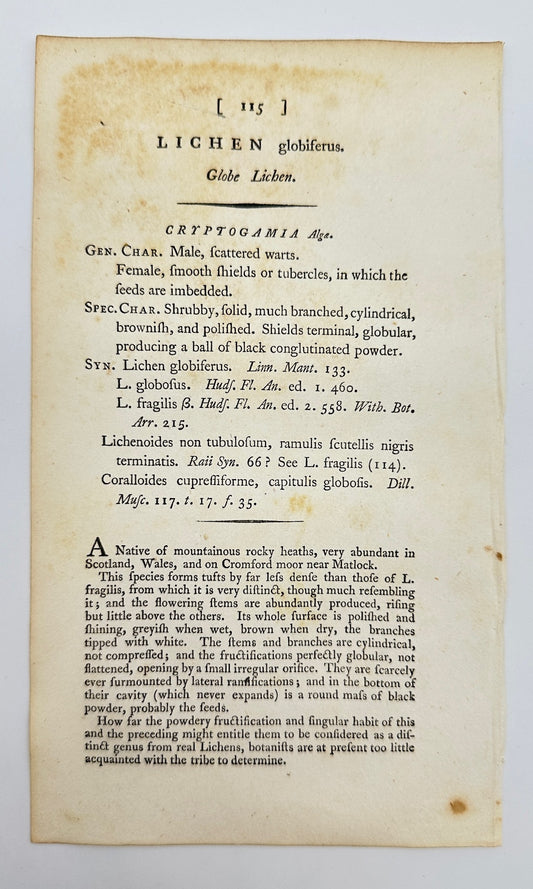 [ 115 ]
LICHEN globiferus.
Globe Lichen.
CRYPTOGAMIA Algæ.
GEN. CHAR. Male, ſcattered warts.
Female, ſmooth ſhields or tubercles, in which the
ſeeds are imbedded.
SPEC. CHAR. Shrubby, ſolid, much branched, cylindrical,
browniſh, and poliſhed. Shields terminal, globular,
producing a ball of black conglutinated powder.
SYN. Lichen globiferus. Linn. Mant. 133.
L. globoſus. Hudſ. Fl. An. ed. 1. 460.
L. fragilis β. Hudſ. Fl. An. ed. 2. 558. With. Bot.
Arr. 215.
Lichenoides non tubuloſum, ramulis ſcutellis nigris
terminatis. Raii Syn. 66? See L. fragilis (114).
Coralloides cupreſſiforme, capitulis globoſis. Dill.
Muſc. 117. t. 17. f. 35.
A Native of mountainous rocky heaths, very abundant in
Scotland, Wales, and on Cromford moor near Matlock.
This ſpecies forms tufts by far leſs denſe than thoſe of L.
fragilis, from which it is very diſtinct, though much reſembling
it; and the flowering ſtems are abundantly produced, riſing
but little above the others. Its whole ſurface is poliſhed and
ſhining, greyiſh when wet, brown when dry, the branches
tipped with white. The ſtems and branches are cylindrical,
not compreſſed; and the fructifications perfectly globular, not
flattened, opening by a ſmall irregular orifice. They are ſcarcely
ever ſurmounted by lateral ramifications; and in the bottom of
their cavity (which never expands) is a round maſs of black
powder, probably the ſeeds.
How far the powdery fructification and ſingular habit of this
and the preceding might entitle them to be conſidered as a diſ-
tinct genus from real Lichens, botaniſts are at preſent too little
acquainted with the tribe to determine.